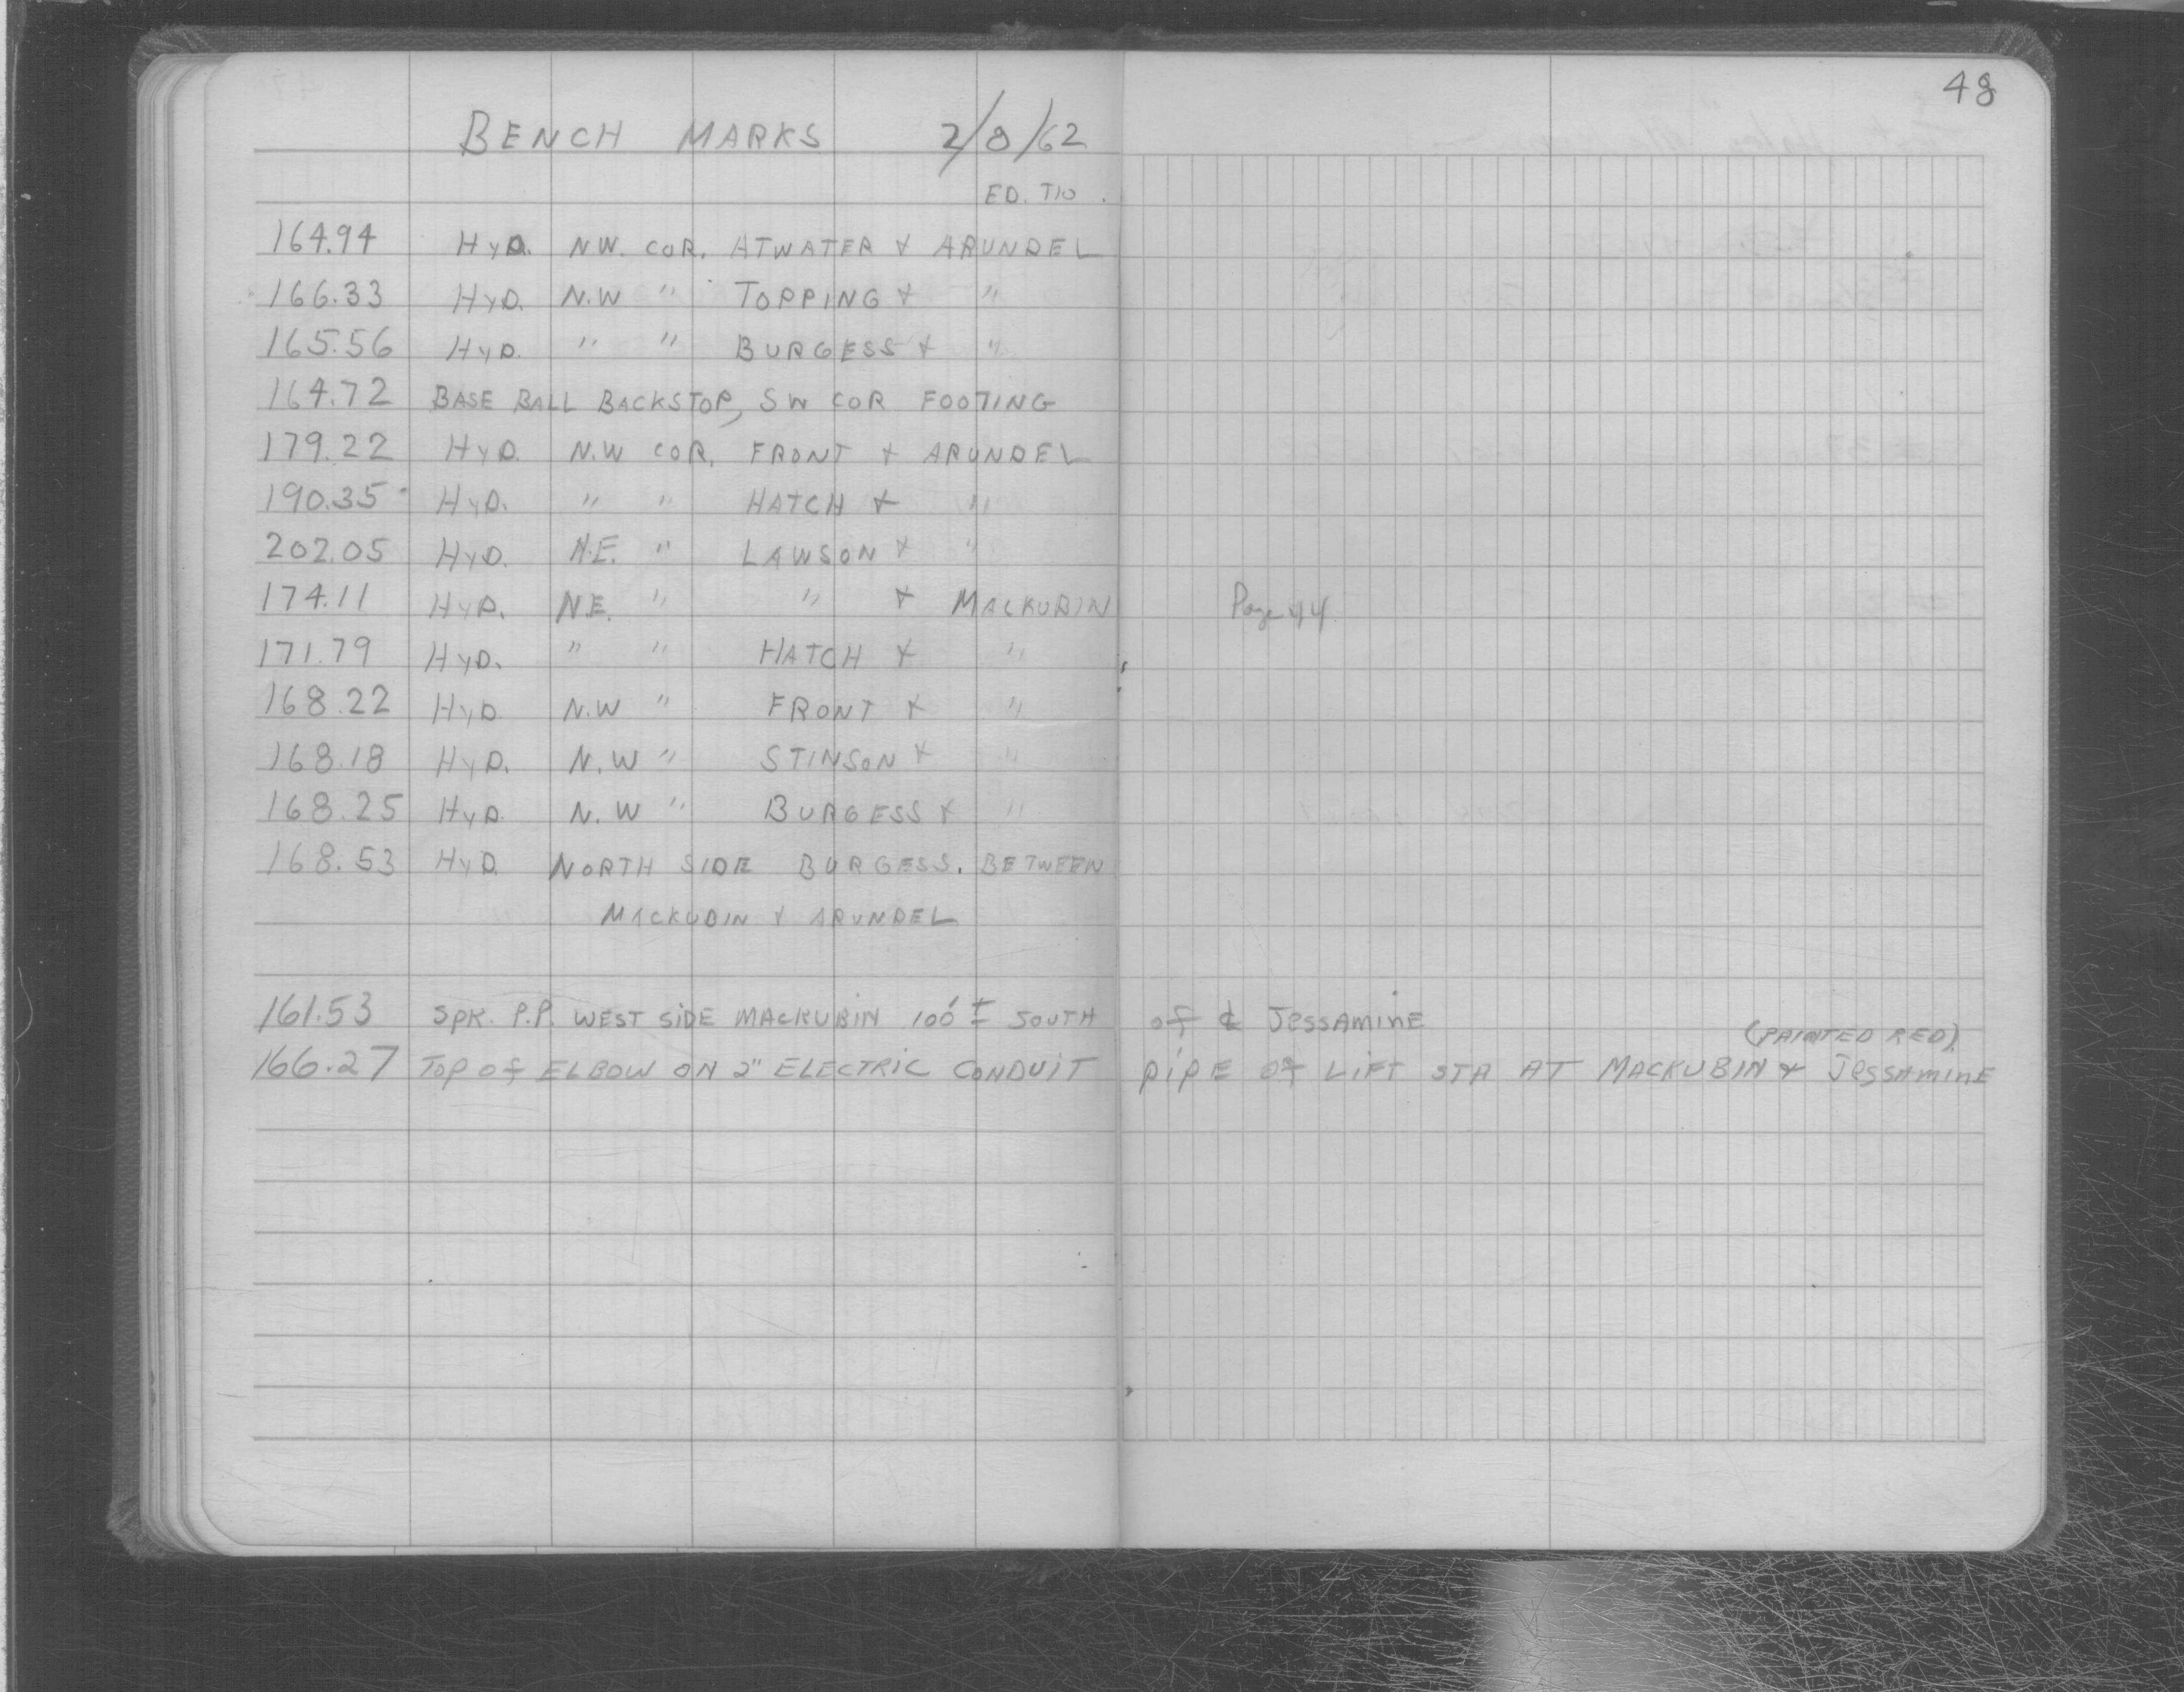 48
BENCH MARKS 2/8/62
ED. TIO.
164.94 HYD. NW. COR. ATWATER & ARUNDEL
166.33 HYD. N.W " TOPPING & "
165.56 HYD. " " BURGESS & "
164.72 BASE BALL BACKSTOP, SW COR FOOTING
179.22 HYD. N.W COR. FRONT & ARUNDEL
190.35 HYD. " " HATCH & "
202.05 HYD. N.E. " LAWSON & "
174.11 HYD. N.E. " " & MACKUBIN Page 44
171.79 HYD. " " HATCH & "
168.22 HYD N.W " FRONT & "
168.18 HYD. N.W " STINSON & "
168.25 HYD. N.W " BURGESS & "
168.53 HYD. NORTH SIDE BURGESS. BETWEEN
MACKUBIN & ARUNDEL
161.53 SPK. P.P. WEST SIDE MACKUBIN 100' ± SOUTH of ℄ JESSAMINE
(PAINTED RED)
166.27 TOP Of ELBOW ON 2" ELECTRIC CONDUIT PIPE OF LIFT STA AT MACKUBIN & JESSAMINE